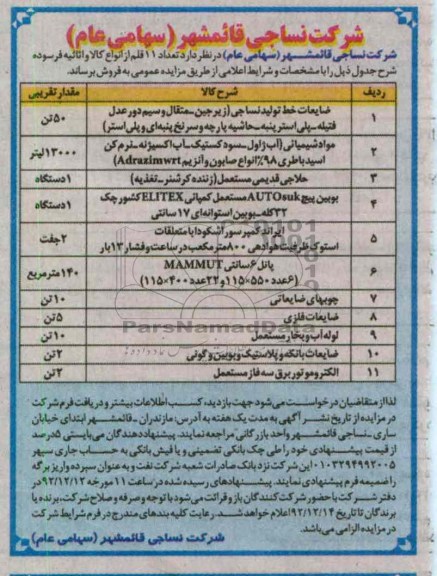 شرکت نساجی قائمشهر (سهامی عام)
شرکت نساجی قائمشهر (سهامی عام) در نظر دارد تعداد ۱۱ قلم از انواع کالا و اثاثیه فرسوده
شرح جدول ذیل را با مشخصات و شرایط اعلامی از طریق مزایده عمومی به فروش برساند.
ردیف شرح کالا مقدار تقریبی
۱ ضایعات خط تولید نساجی (زیرجین_متقال و سیم دور عدل
فتیله_پلی استر پنبه_حاشیه پارچه و سرنخ پنبه‌ای و پلی استر) ۵۰ تن
۲ مواد شیمیائی (آب ژاول_سودکستیک_آب اکسیژنه_نرم کن
اسید باطری ۹۸٪ انواع صابون و آنزیم Adrazimwrt) ۱۳۰۰۰ لیتر
۳ حلاجی قدیمی مستعمل (زننده کرشنر_تغذیه) ۱ دستگاه
۴ بوبین پیچ AUTOsuk مستعمل کمپانی ELITEX کشور چک
۳۲ کله_بوبین استوانه‌ای ۱۷ سانتی ۱ دستگاه
۵ ایراند کمپرسور آشکودا با متعلقات
استوک ظرفیت هوادهی ۸۰۰ متر مکعب در ساعت و فشار ۱۳ بار ۲ جفت
۶ پانل ۶ سانتی MAMMUT
(۶ عدد ۵۵۰×۱۱۵ و ۲۲ عدد ۴۰۰×۱۱۵) ۱۴۰ متر مربع
۷ چوبهای ضایعاتی ۱۰ تن
۸ ضایعات فلزی ۵ تن
۹ لوله آب و بخار مستعمل ۱۰ تن
۱۰ ضایعات بانکه و پلاستیک و بوبین و گونی ۲ تن
۱۱ الکتروموتور برق سه فاز مستعمل ۲ تن
ParsNamadData
لذا از متقاضیان درخواست می‌شود جهت بازدید، کسب اطلاعات بیشتر و دریافت فرم شرکت
در مزایده از تاریخ نشر آگهی به مدت یک هفته به آدرس: مازندران _ قائمشهر ابتدای خیابان
ساری _ نساجی قائمشهر واحد بازرگانی مراجعه نمایند. پیشنهاد دهندگان می‌بایستی ۵ درصد
از قیمت پیشنهادی خود را طی چک بانکی تضمینی و یا فیش بانکی به حساب جاری سپهر
۰۱۰۳۲۹۴۹۹۲۰۰۵ این شرکت نزد بانک صادرات شعبه شرکت نفت و به عنوان سپرده واریز برگه
را ضمیمه فرم پیشنهادی نمایند. پیشنهادهای رسیده شده در ساعت ۱۱ مورخه ۹۲/۱۲/۱۲ در
دفتر شرکت با حضور شرکت کنندگان باز و قرائت می‌شود با توجه صرفه و صلاح شرکت، برنده یا
برندگان تا تاریخ ۹۲/۱۲/۱۴ اعلام خواهد شد. رعایت کلیه بندهای مندرج در فرم شرایط شرکت
در مزایده الزامی می‌باشد.
شرکت نساجی قائمشهر (سهامی عام)